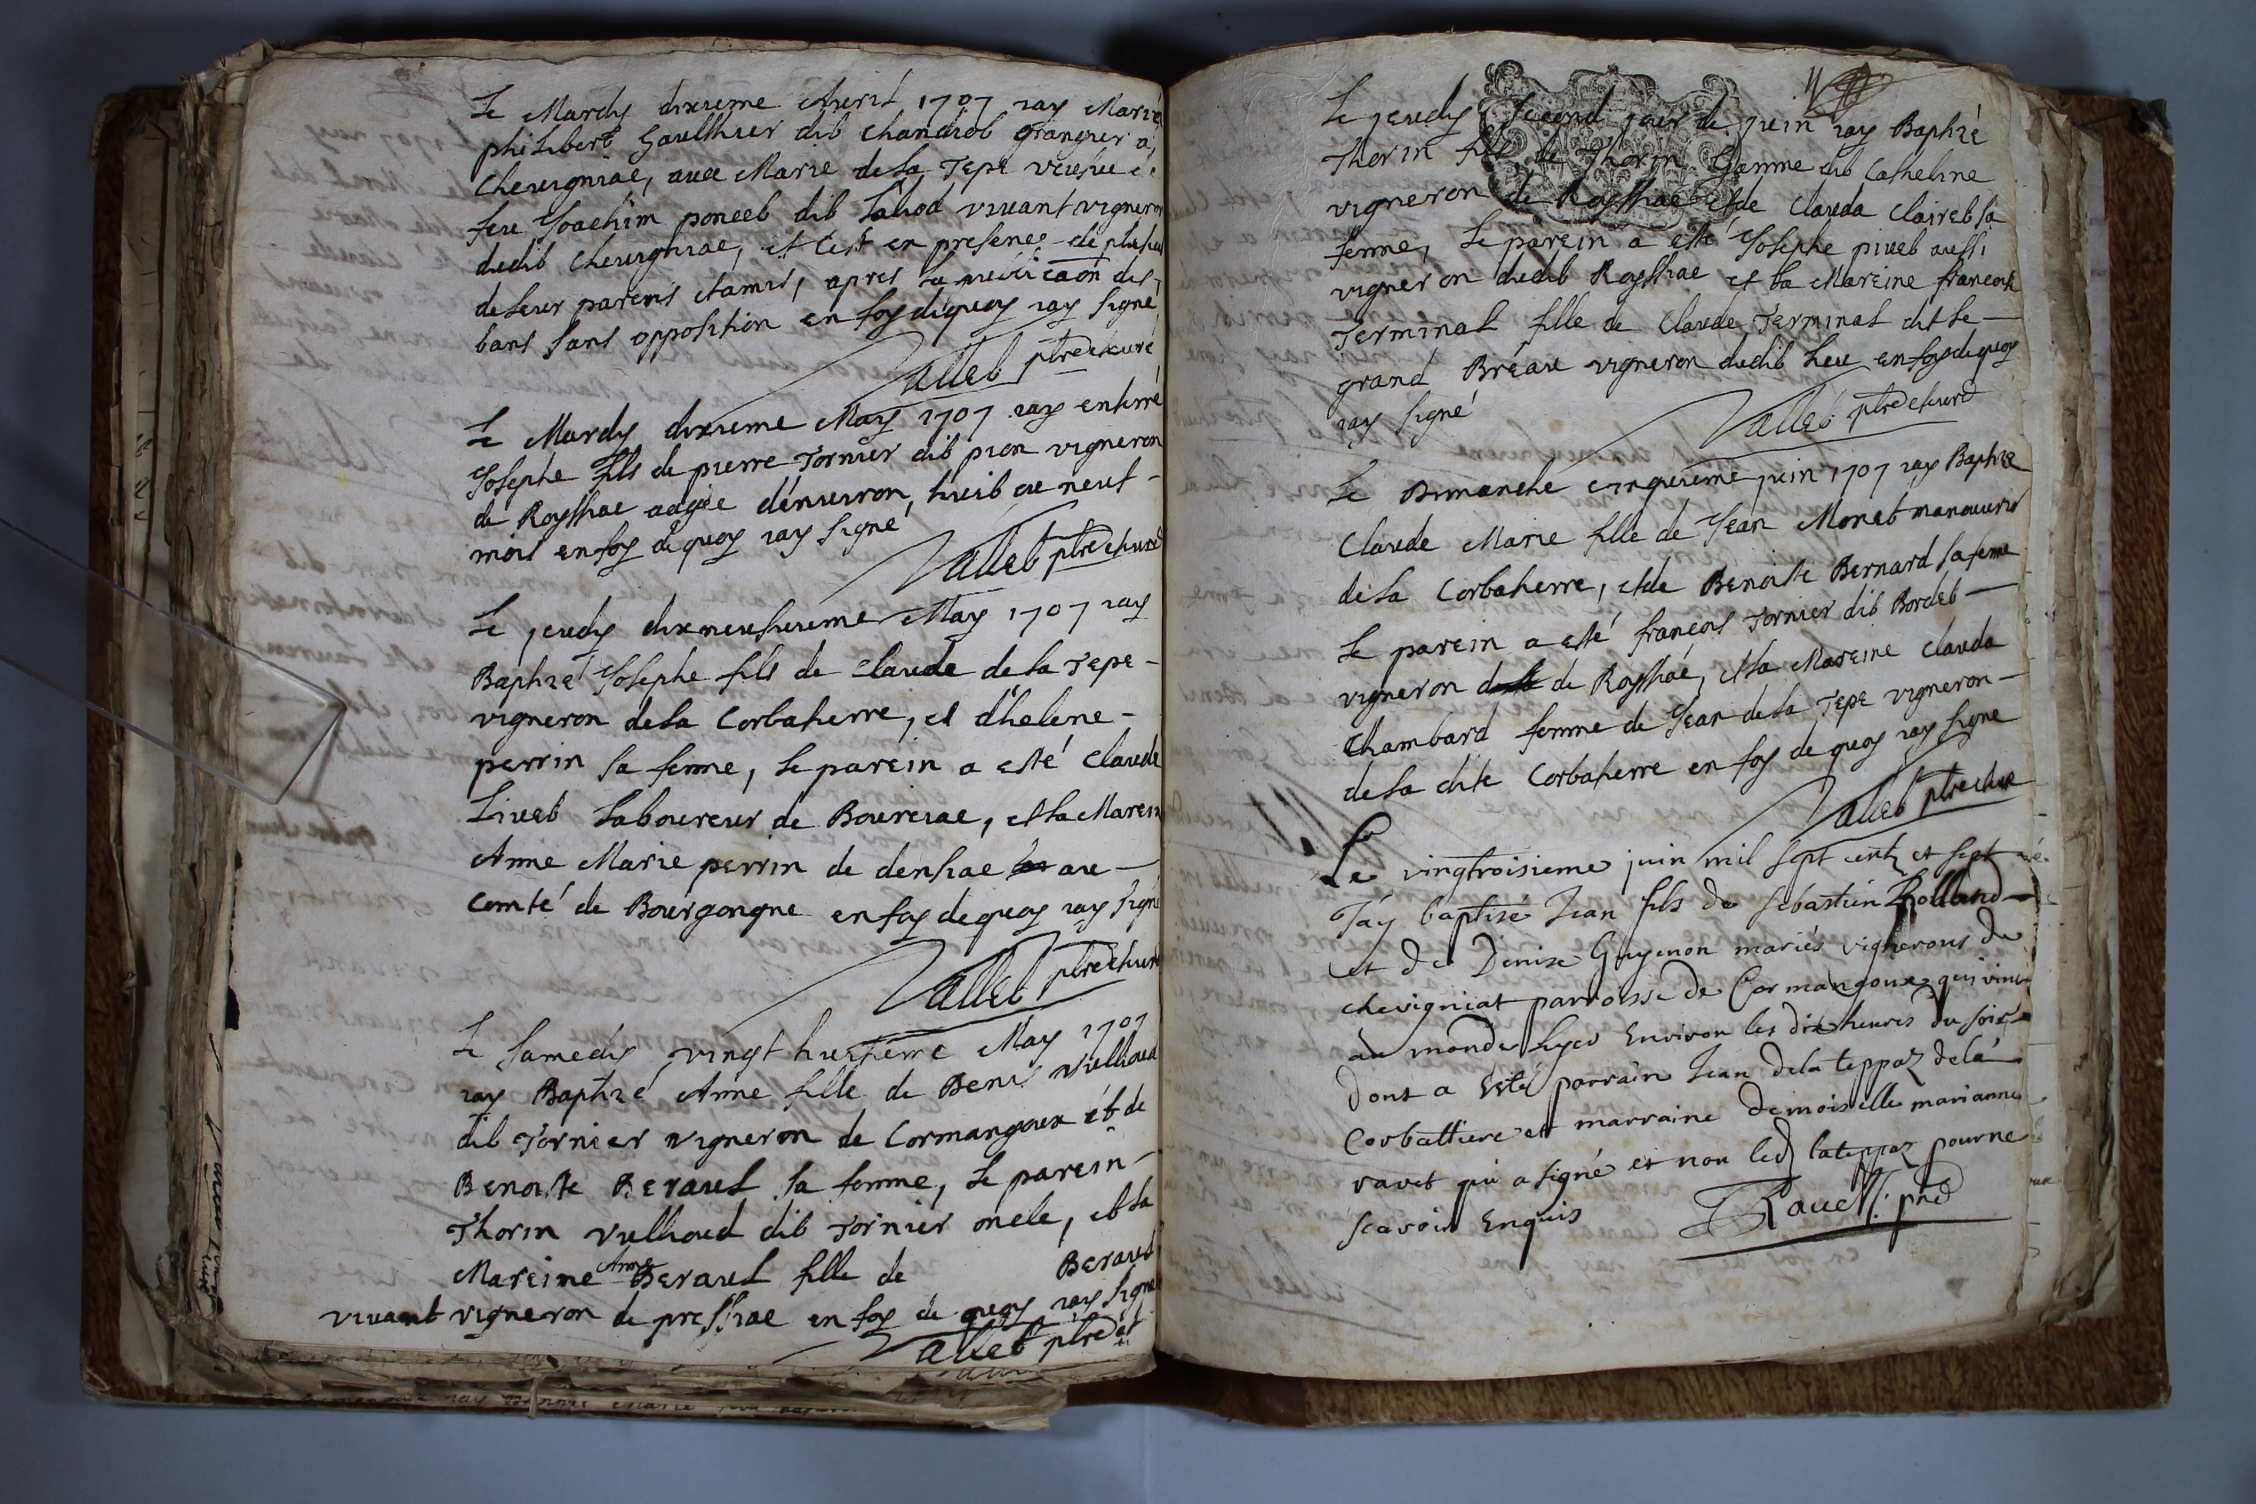 Le Mardy dixieme Avril 1707 iay Marié
philibert Gaulthier dit Chandiot granger a
Chevigniac, avec Marie de la Tepe veufve de
feu Joachim poncet dit Lavod vivant vigneron
dudit Chevigniac, et c'est en presence de plusieurs
de leur parens et amis, apres la publicaon des
bans sans opposition en foy de quoy iay signé
Vallet ptre et curé
Le Mardy dixieme May 1707 iay enterré
Josephe fils de pierre Tornier dit pion vigneron
de Royssiac aagée d'enuiron, huit ou neuf -
mois en foy de quoy iay signé
Vallet ptre et curé
Le jeudy dixneufvieme May 1707 iay
Baptizé Josephe fils de Claude de la Tepe -
vigneron de la Corbatierre, et d'helene -
perrin sa femme, le parein a esté Claude
Livet laboureur de Boureiac, et la Mareine
Anne Marie perrin de densiac au -
Comté de Bourgongne en foy de quoy iay signé
Vallet ptre et curé
Le samedy vingt huitieme May 1707
iay Baptizé Anne fille de Beni Vulhoud
dit Tornier vigneron de Cormangoux et de
Benoite Beraud sa femme, le parein -
Thorin Vulhoud dit Tornier oncle, et la
Mareine Anne Beraud fille de Beraud
vivant vigneron de pressiac en foy de quoy iay signé
Vallet ptre et
curé
Le jeudy second jour de juin iay Baptizé
Thorin fils de Thorin Gamme dit Catheline
vigneron de Royssiac et de Clauda Clairet sa
femme, le parein a esté Josephe pivet aussi
vigneron dudit Royssiac et la Mareine francoise
Terminal fille de Claude Terminal dit le -
grand Bréau vigneron dudit lieu en foy de quoy
iay signé
Vallet ptre et curé
Le Dimanche cinquieme juin 1707 iay Baptizé
Claude Marie fille de Jean Monet manouvrier
de la Corbatierre, et de Benoite Bernard sa feme
Le parein a esté françois Tornier dit Bordet -
vigneron de Royssiac, et la Mareine Clauda
Chambard femme de Jean de la Tepe vigneron -
de la dite Corbatierre en foy de quoy iay signé
Vallet ptre et curé
Le vingtroisieme juin mil sept centz et sept
J'ay baptizé Jean fils de sebastien Rolland
et de Denise Guyenon mariés vignerons de
chevigniat parroisse de Cormangoux qui vint
au monde hyer Environ les dix heures du soir
dont a Esté parrain Jean delateppaz de la
Corbattiere et marraine demoiselle marianne
ravet qui a signé et non led lateppaz pour ne
scavoir Enquis